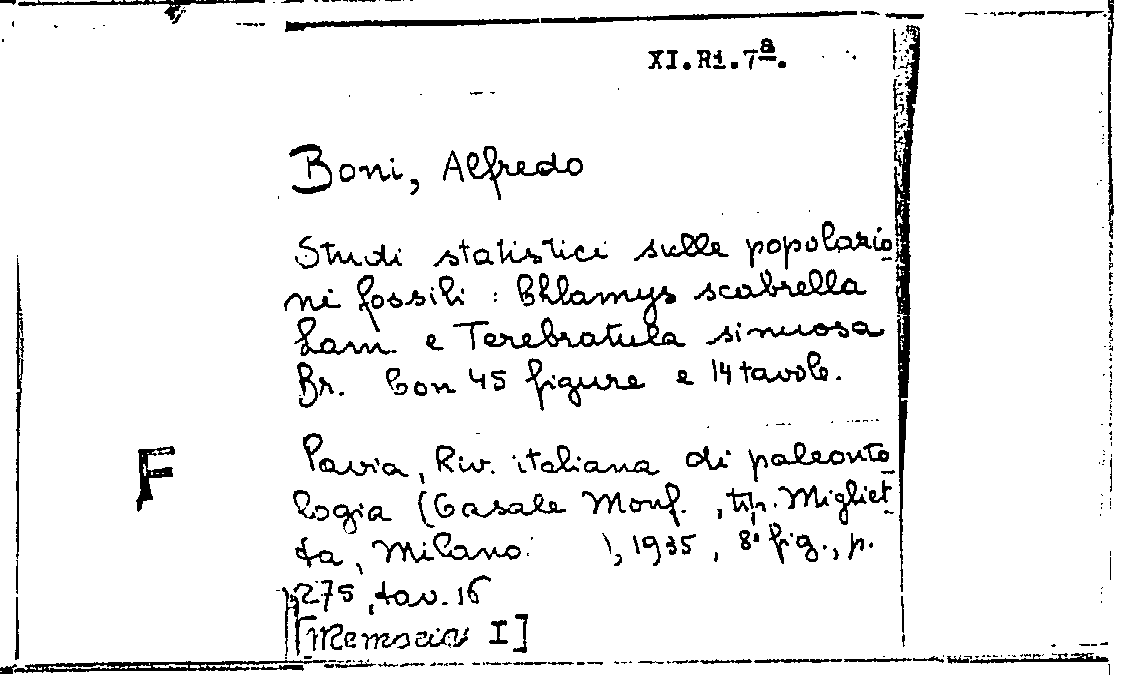 XI.Ri.7ª.
Boni, Alfredo
Studi statistici sulle popolazio
ni fossili : Chlamys scabrella
Lam. e Terebratula sinuosa
Br. Con 45 figure e 14 tavole.
F
Pavia, Riv. italiana di paleonto
logia (Casale Monf. , tip. Migliet
ta, Milano. ), 1935, 8° fig., p.
275, tav. 16
[Memoria I]